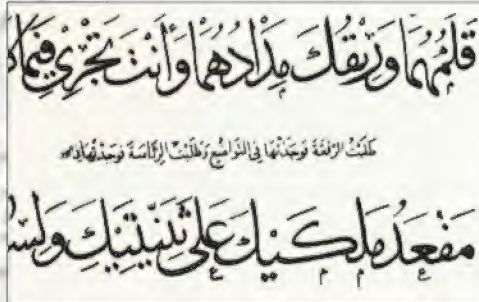 قَلَمُهُمَا وَرِيْقُكَ مِدَادُهُمَا وَأَنْتَ تَجْرِي فِيمَا
طَلَبْتُ الرِّفْعَةَ فَوَجَدْتُهَا فِي التَّوَاضُعِ وَطَلَبْتُ الرِّئَاسَةَ فَوَجَدْتُهَا
مَقْعَدُ مَلَكَيْكَ عَلَى ثَنِيَّتَيْكَ وَلِسَا